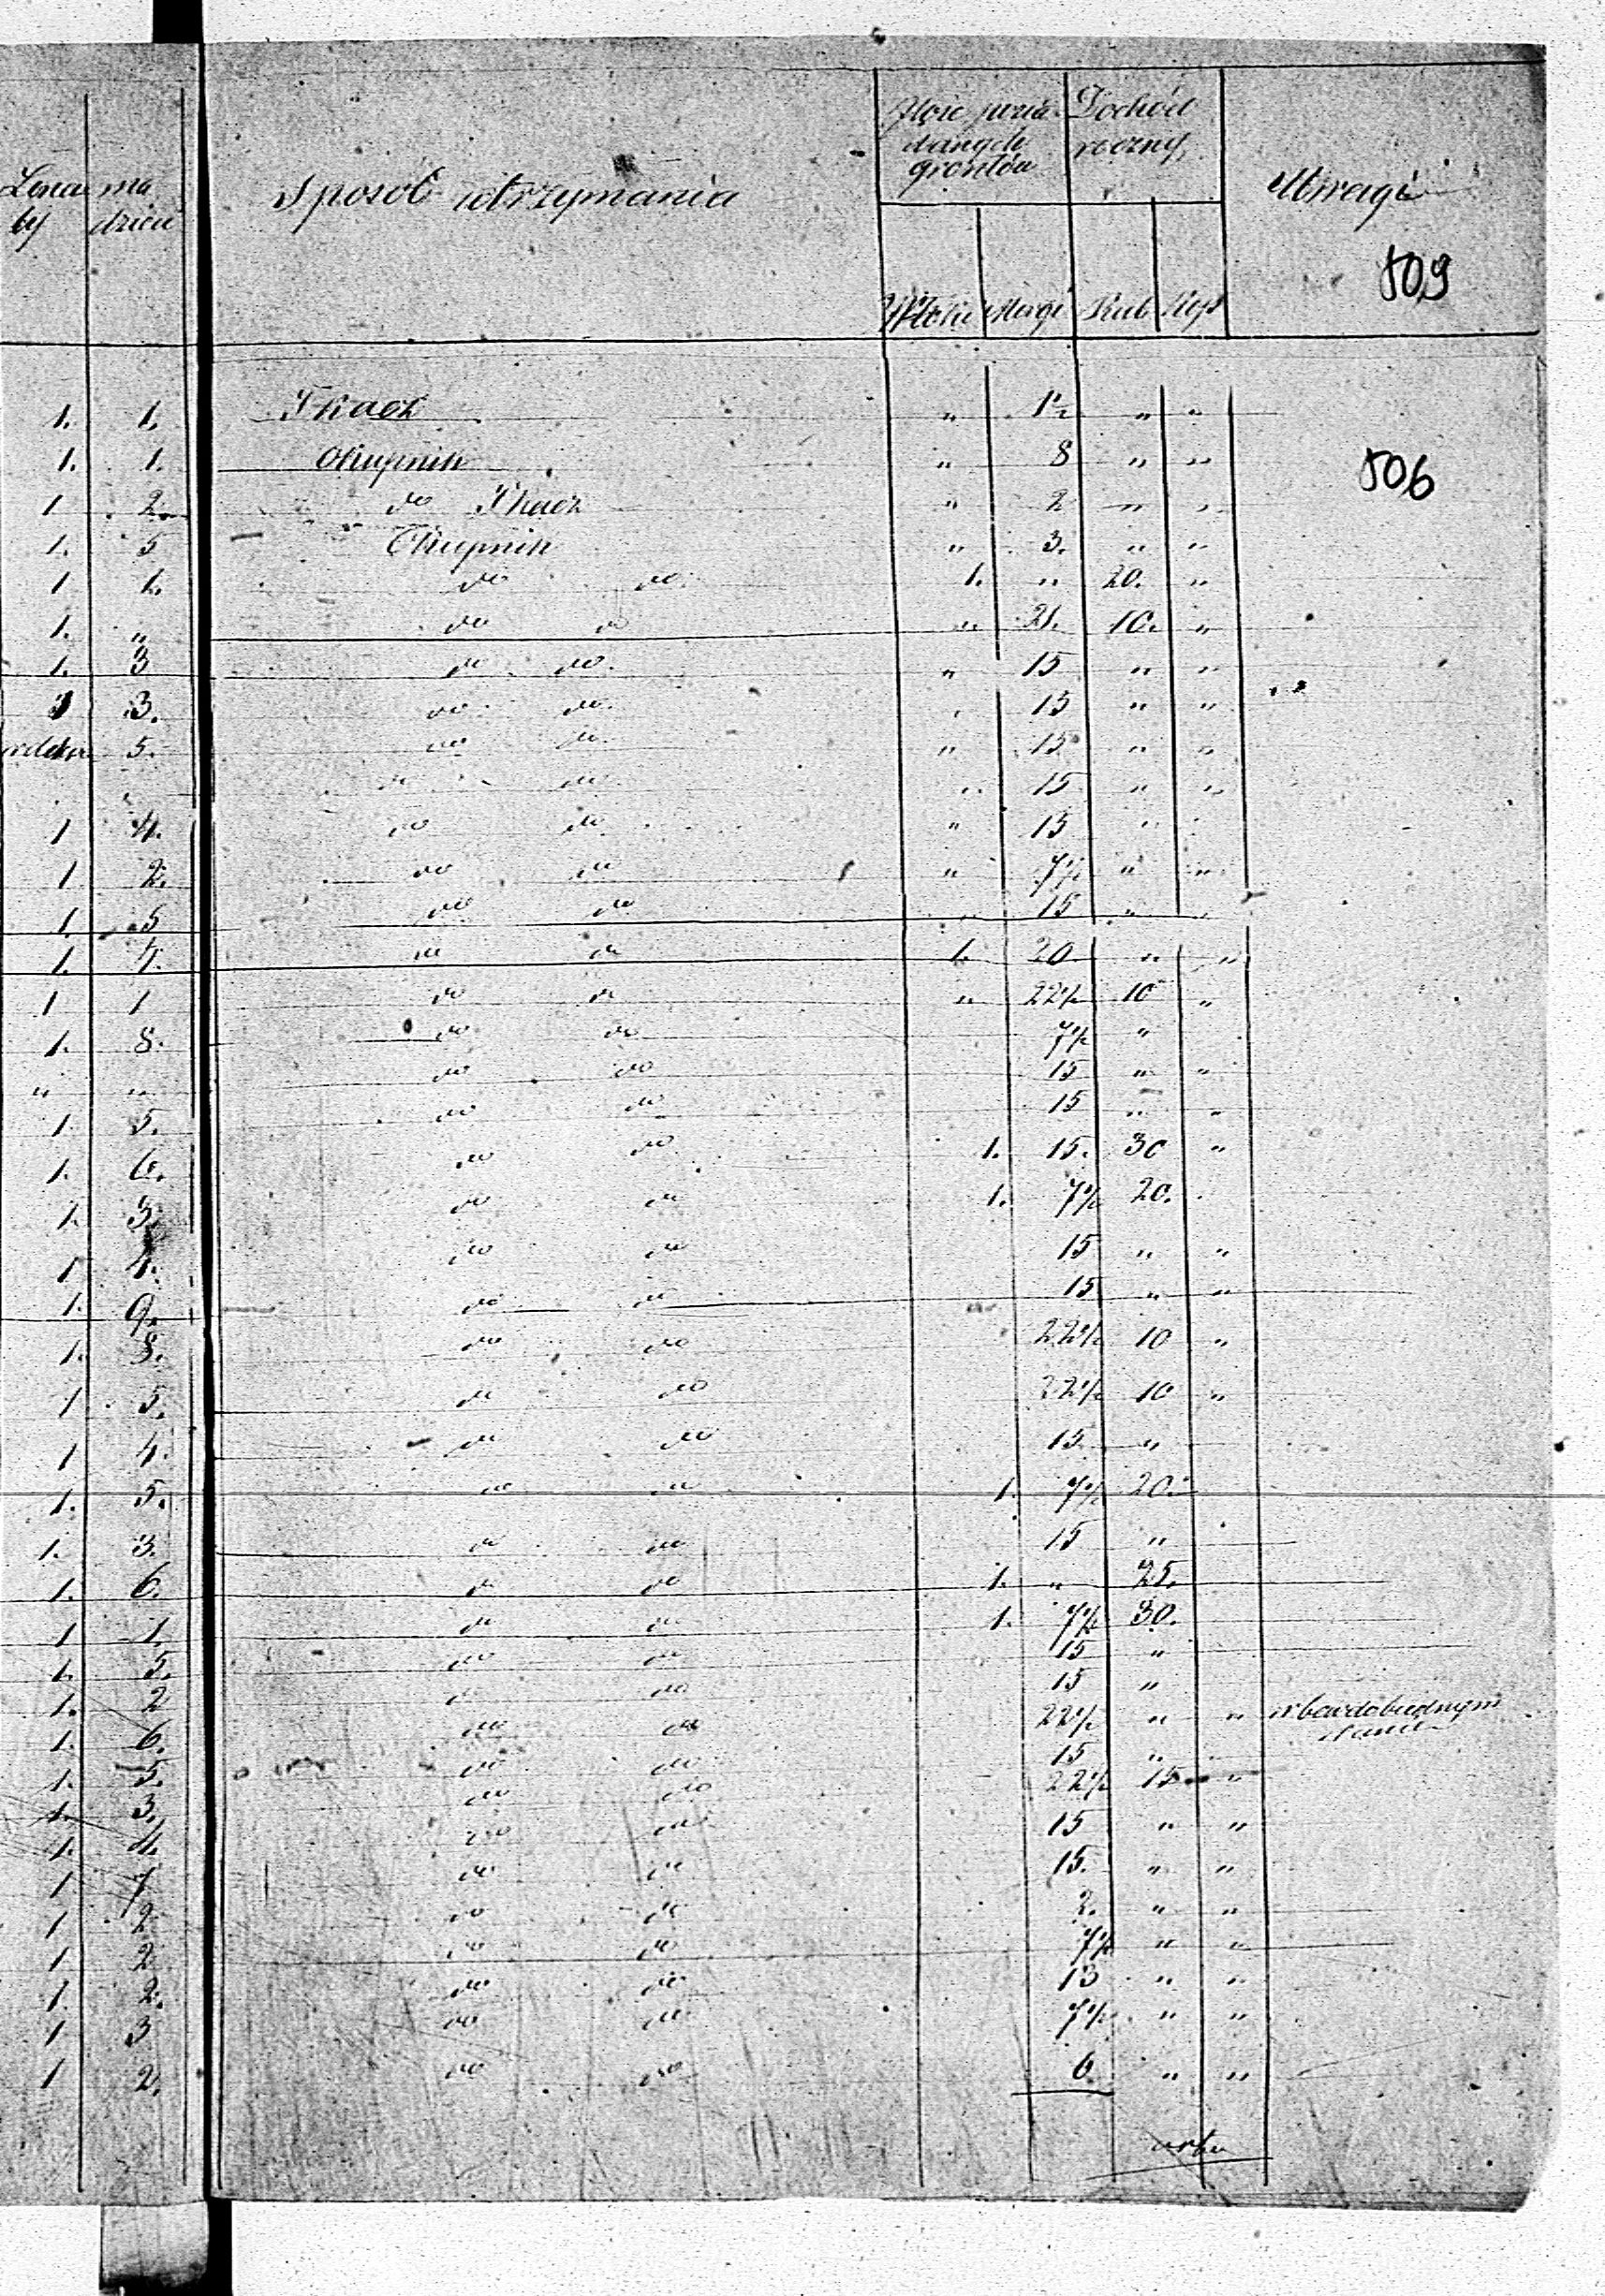 Żona ma Sposób utrzymania Ilość posia- Dochód Uwagi
ty dzieci danych roczny
gruntów
809
Włóki Morgi Rub Kop
1. 1. Tkacz " 1½ " "
1. 1. Okupnik " 8 " "
806
1 2. do Tkacz " 2 " "
1. 5 Okupnik " 3. " "
1 1. do do. 1. " 20. "
1. " do do " 21. 10. "
1. 3 do do. " 15 " "
3. do do. " 15 " "
5. do do " 15 " "
do do " 15 " "
1 4. do do " 15 "
1 2. do do " 7½ " "
1. 5 do do 15 "
1. 4. do do 1. 20 " "
1 1 do do " 22½ 10 "
1. 8. do do 7½ "
" " do do 15 " "
1. 5. do do 15 " "
1. 6. do do 1. 15. 30 "
1. 3. do do 1. 7½ 20.
1 4. do do 15 " "
1. 9. do do 15 " "
1. 8. do do 22½ 10 "
1 5. do do 22½ 10 "
1 4. do do 15. "
1. 5. do do 1. 7½ 20.
1. 3. do do 15 "
1. 6. do do 1. " 25.
1 1. do do 1. 7½ 30.
1. 5. do do 15 "
1. 2 do do 15 "
1. 6. do do 22½ " " w bardo biednym
stanie
1. 5. do do 15 "
1. 3. do do 22½ 15 "
1. 4. do do 15 " "
1 7 do do 15. " "
1 2 do do 2. " "
1 2 do do 7½ " "
1. 2. do do 15 " "
1 3 do do 7½ " "
1 2. do do 6. " "